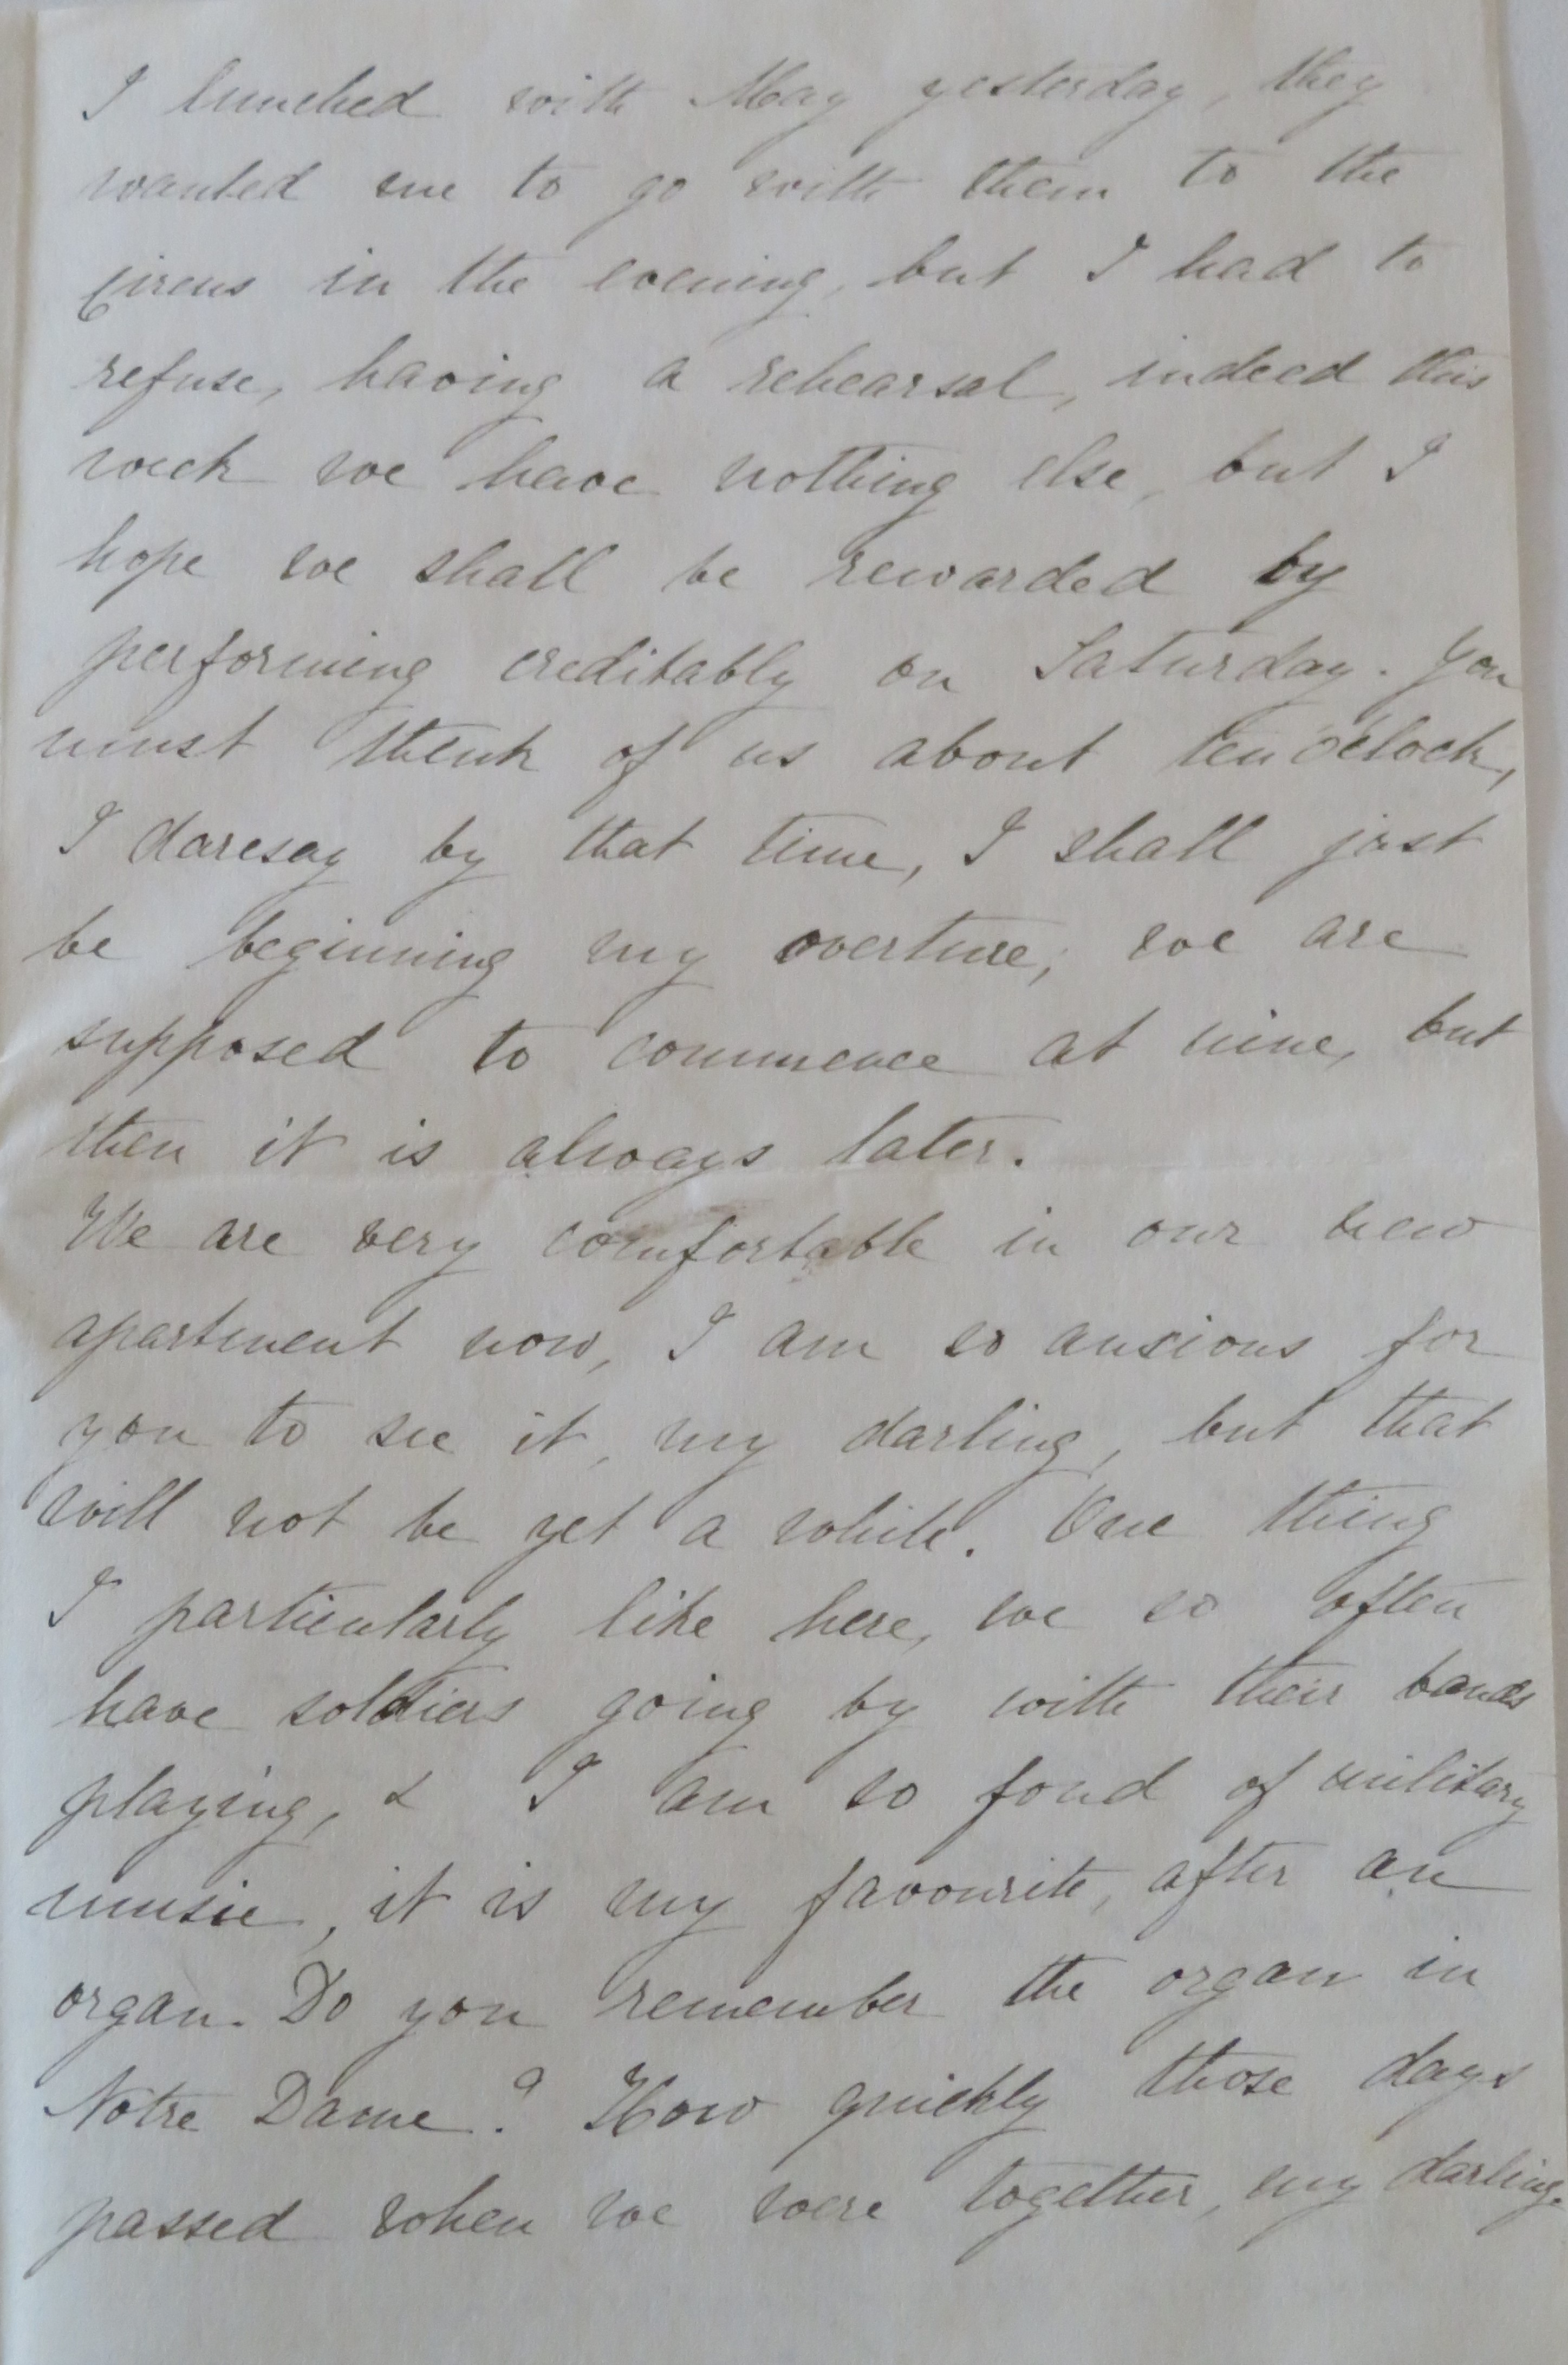 I lunched with May yesterday, they
wanted me to go with them to the
circus in the evening, but I had to
refuse, having a rehearsal, indeed this
week we have nothing else, but I
hope we shall be rewarded by
performing creditably on Saturday. You
must think of us about ten o'clock,
I daresay by that time, I shall just
be beginning my overture; we are
supposed to commence at nine, but
then it is always later.
We are very comfortable in our new
apartment now, I am so anxious for
you to see it, my darling, but that
will not be yet a while. One thing
I particularly like here, we so often
have soldiers going by with their bands
playing, & I am so fond of military
music, it is my favourite, after an
organ. Do you remember the organ in
Notre Dame? How quickly those days
passed when we were together, my darling.